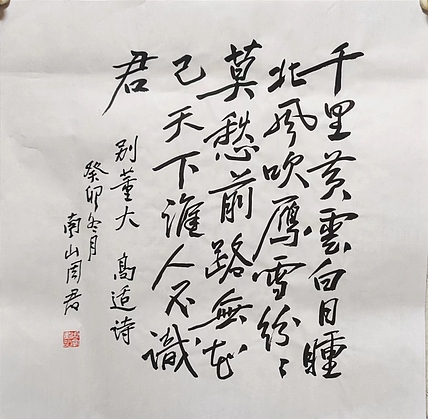 千里黄雲白日曛
北風吹雁雪紛々
莫愁前路無知
己天下誰人不識
君
别董大 高适诗
癸卯冬月
南山周君